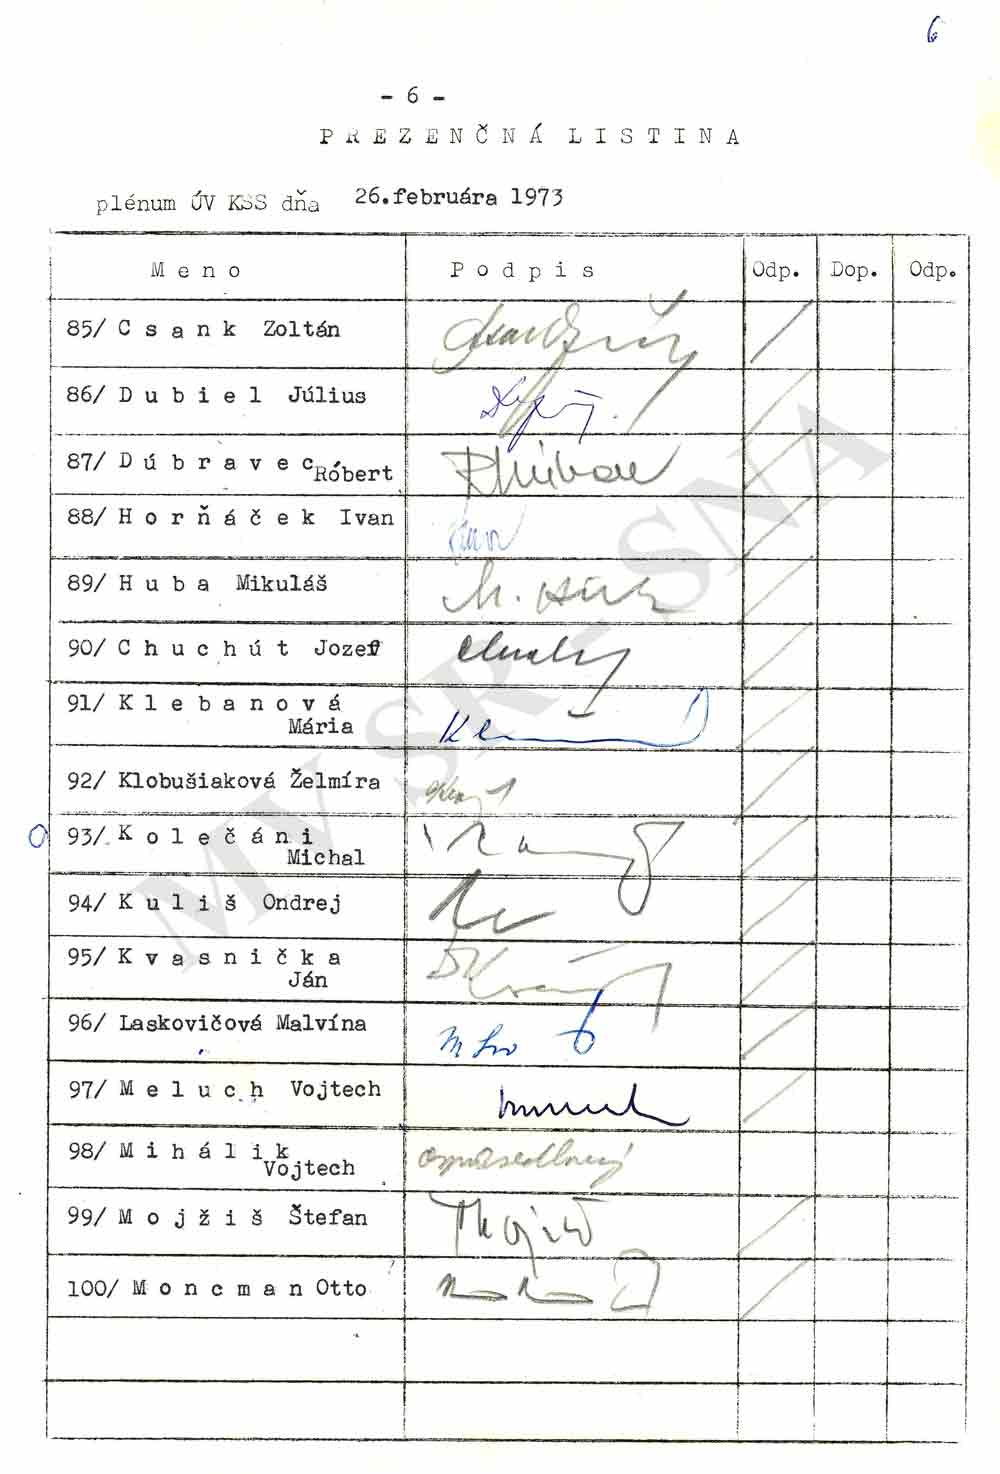 6
- 6 -
PREZENČNÁ LISTINA
plénum ÚV KSS dňa 26.februára 1973
Meno Podpis Odp. Dop. Odp.
85/ Csank Zoltán
86/ Dubiel Július
87/ Dúbravec
Róbert
88/ Horňáček Ivan
89/ Huba Mikuláš
M. Huba
90/ Chuchút Jozef
91/ Klebanová
Mária
92/ Klobušiaková Želmíra
93/ Kolečáni
Michal
94/ Kuliš Ondrej
95/ Kvasnička
Ján
96/ Laskovičová Malvína
97/ Meluch Vojtech
98/ Mihálik
Vojtech
ospravedlnený
99/ Mojžiš Štefan
100/ Moncman Otto
MV SR - SNA